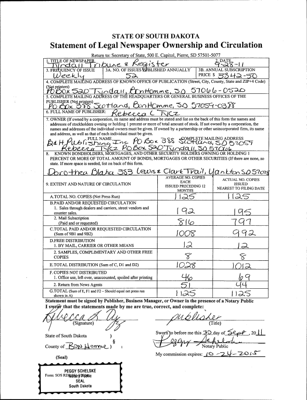 STATE OF SOUTH DAKOTA
Statement of Legal Newspaper Ownership and Circulation
Return to: Secretary of State, 500 E. Capitol, Pierre, SD 57501-5077
1. TITLE OF NEWSPAPER
Tyndall Tribune & Register
2. DATE
9-28-11
3. FREQUENCY OF ISSUE
Weekly
3A. NO. OF ISSUES PUBLISHED ANNUALLY
52
3B. ANNUAL SUBSCRIPTION
PRICE $
4. COMPLETE MAILING ADDRESS OF KNOWN OFFICE OF PUBLICATION (Street, City, County, State and ZIP+4 Code)
(Not printers)
PO Box 520 Tyndall, BonHomme, SD 57066-0520
5. COMPLETE MAILING ADDRESS OF THE HEADQUARTERS OF GENERAL BUSINESS OFFICES OF THE
PUBLISHER (Not printer)
PO Box 398 Scotland, BonHomme, SD 57059-0398
6. FULL NAME OF PUBLISHER:
Rebecca L
7. OWNER (If owned by a corporation, its name and address must be stated and also on the back of this form the names and
addresses of stockholders owning or holding 1 percent or more of total amount of stock. If not owned by a corporation, the
names and addresses of the individual owners must be given. If owned by a partnership or other unincorporated firm, its name
and address, as well as that of each individual must be given.
FULL NAME
COMPLETE MAILING ADDRESS
B&H Publishing Inc PO Box 398 Scotland SD 57059
Rebecca PO Box 520 Tyndall SD 57066
8. KNOWN BONDHOLDERS, MORTGAGES, AND OTHER SECURITY HOLDERS OWNING OR HOLDING 1
PERCENT OR MORE OF TOTAL AMOUNT OF BONDS, MORTGAGES OR OTHER SECURITIES (If there are none, so
state. If more space is needed, list on back of this form)
Dorothea Blaha 383 Lewis & Clark Trail, Yankton SD 57078
9. EXTENT AND NATURE OF CIRCULATION
AVERAGE NO. COPIES
EACH
ISSUED PRECEDING 12
MONTHS
ACTUAL NO. COPIES
ISSUED
NEAREST TO FILING DATE
A. TOTAL NO. COPIES (Net Press Run)
1125
1125
B. PAID AND/OR REQUESTED CIRCULATION
1. Sales through dealers and carriers, street vendors and
counter sales.
192
195
2. Mail Subscription
(Paid and/or requested)
816
797
C. TOTAL PAID AND/OR REQUESTED CIRCULATION
(Sum of 9B1 and 9B2)
1008
992
D. FREE DISTRIBUTION
1. BY MAIL, CARRIER OR OTHER MEANS
12
12
2. SAMPLES, COMPLIMENTARY AND OTHER FREE
COPIES
8
8
E. TOTAL DISTRIBUTION (Sum of C, D1 and D2)
1028
1012
F. COPIES NOT DISTRIBUTED
1. Office use, left over, unaccounted, spoiled after printing
46
69
2. Return from News Agents
51
44
G. TOTAL (Sum of E, F1 and F2 - Should equal net press run
shown in A)
1125
1125
Statement must be signed by Publisher, Business Manager, or Owner in the presence of a Notary Public
I swear that the statements made by me are true, correct, and complete:
Rebecca L
(Signature)
publisher
(Title)
State of South Dakota
County of Bon Homme
(Seal)
Sworn to before me this day of Sept., 2011
Peggy Schelske
Notary Public
My commission expires: 10-24-2015
PEGGY SCHELSKE
NOTARY PUBLIC
SEAL
South Dakota